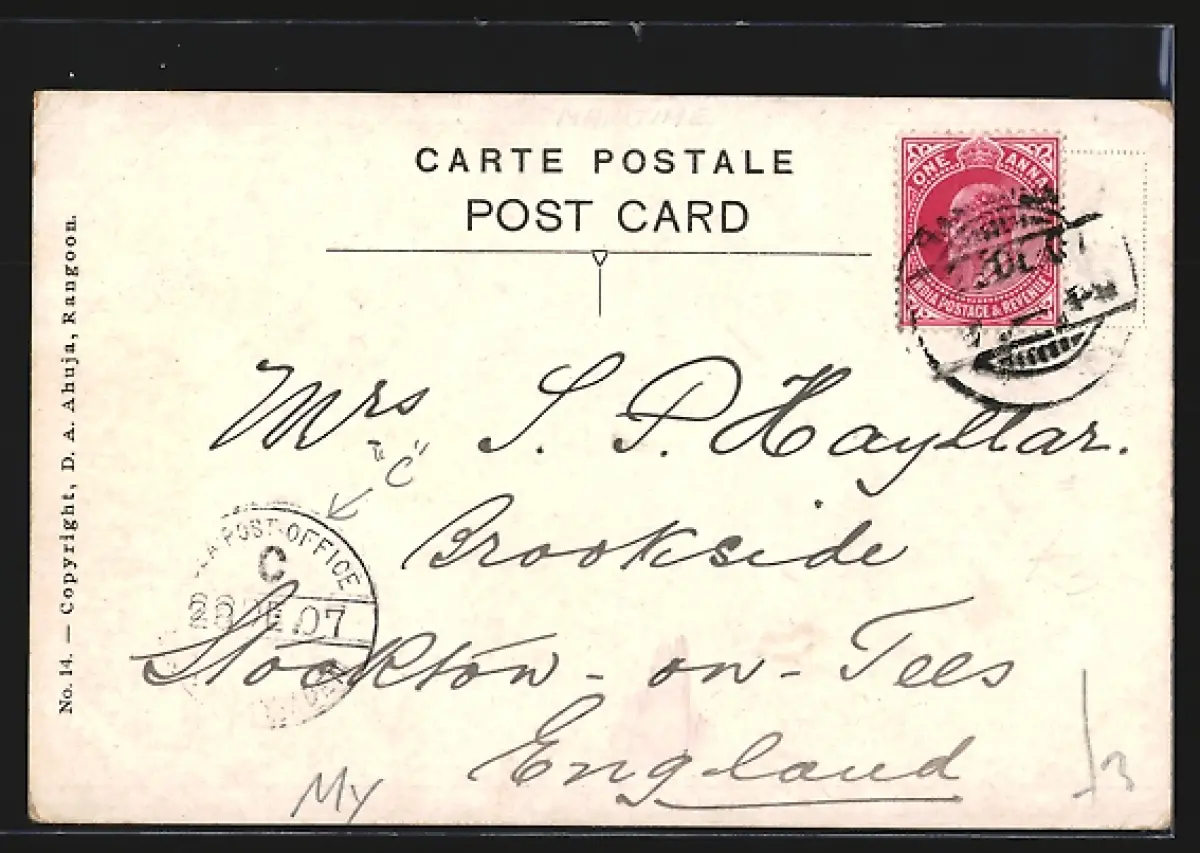 MARITIME
CARTE POSTALE
POST CARD
ONE ANNA
INDIA POSTAGE & REVENUE
Mrs S. P. Hayllar.
"C"
Brookside
Stockton-on-Tees
England
POST OFFICE
C
07
No. 14. — Copyright, D. A. Ahuja, Rangoon.
My